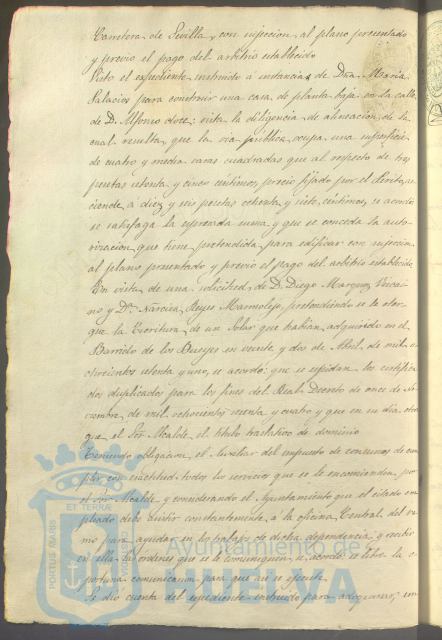 Carretera de Sevilla, con sujeccion al plano presentado
y previo el pago del arbitrio establecido
Visto el expediente instruido á instancias de Dña. María
Palacios para construir una casa de planta baja en la calle
de D. Alfonso doce; vista la diligencia de alineacion, de la
cual resulta, que la via pública, ocupa una superficie
de cuatro y media varas cuadradas que al respecto de tres
pesetas setenta y cinco céntimos, precio fijado por el Perito, as-
ciende á diez y seis pesetas ochenta y siete céntimos, se acordó
se satisfaga la espresada suma y que se conceda la auto-
rizacion que tiene pretendida para edificar con sujeccion
al plano presentado y previo el pago del arbitrio establecido
En vista de una solicitud de D. Diego Marquez
no y Dª Narcisa Reyes Marmolejo, pretendiendo se le otor-
gue la Escritura de un Solar que habian adquirido en el
Barrido de los Bueyes en veinte y dos de Abril de mil o-
chocientos setenta y uno, se acordó: que se espidan los certifica-
dos duplicados para los fines del Real Decreto de once de No-
viembre de mil ochocientos sesenta y cuatro y que en su dia otor-
gue el Sor. Alcalde el título traslativo de dominio
Teniendo obligacion el Auxiliar del impuesto de consumos de cum-
plir con exactitud todos los servicios que se le encomienden por
el Sor. Alcalde y considerando el Ayuntamiento que el citado em-
pleado debe asistir constantemente á la oficina Central del ra-
mo para ayudar en los trabajos de dicha dependencia y recibir
en ella las órdenes que se le comuniquen, se acordó se libre la o-
portuna comunicacion para que así se efectúe
Se dió cuenta del espediente instruido para
PORTUS MARIS
ET TERRÆ
Ayuntamiento de
HUELVA